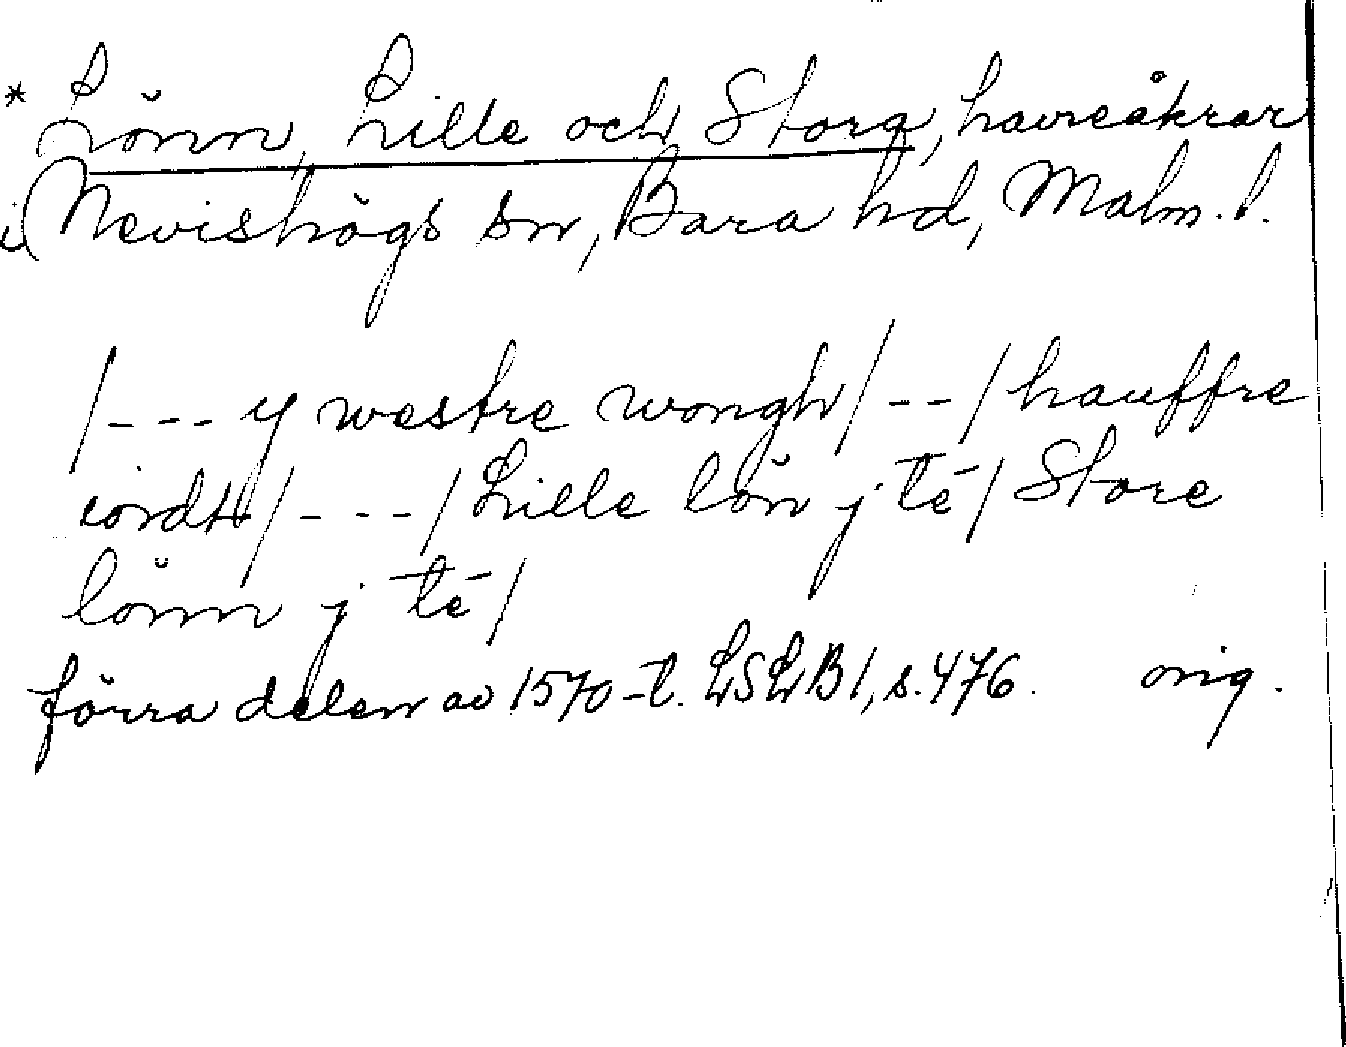 * Lönn, Lille och Stora, havreåkrar
i Nevishögs sn, Bara hd, Malm. l.
/--- y westre wongh/--/hauffre
iordt/----/Lille lön j té/Store
lönn j té/
förra delen av 1570-t. LSLB1, s. 476. orig.